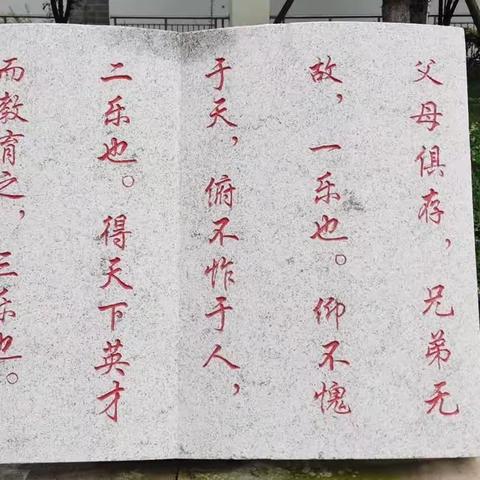 父母俱存，兄弟无
故，一乐也。仰不愧
于天，俯不怍于人，
二乐也。得天下英才
而教育之，三乐也。